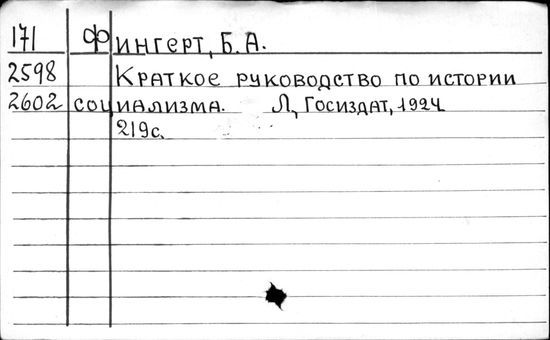 171 Фингерт, Б. А.
2598 Краткое руководство по истории
2602 социализма. Л, Госиздат, 1924
219с.